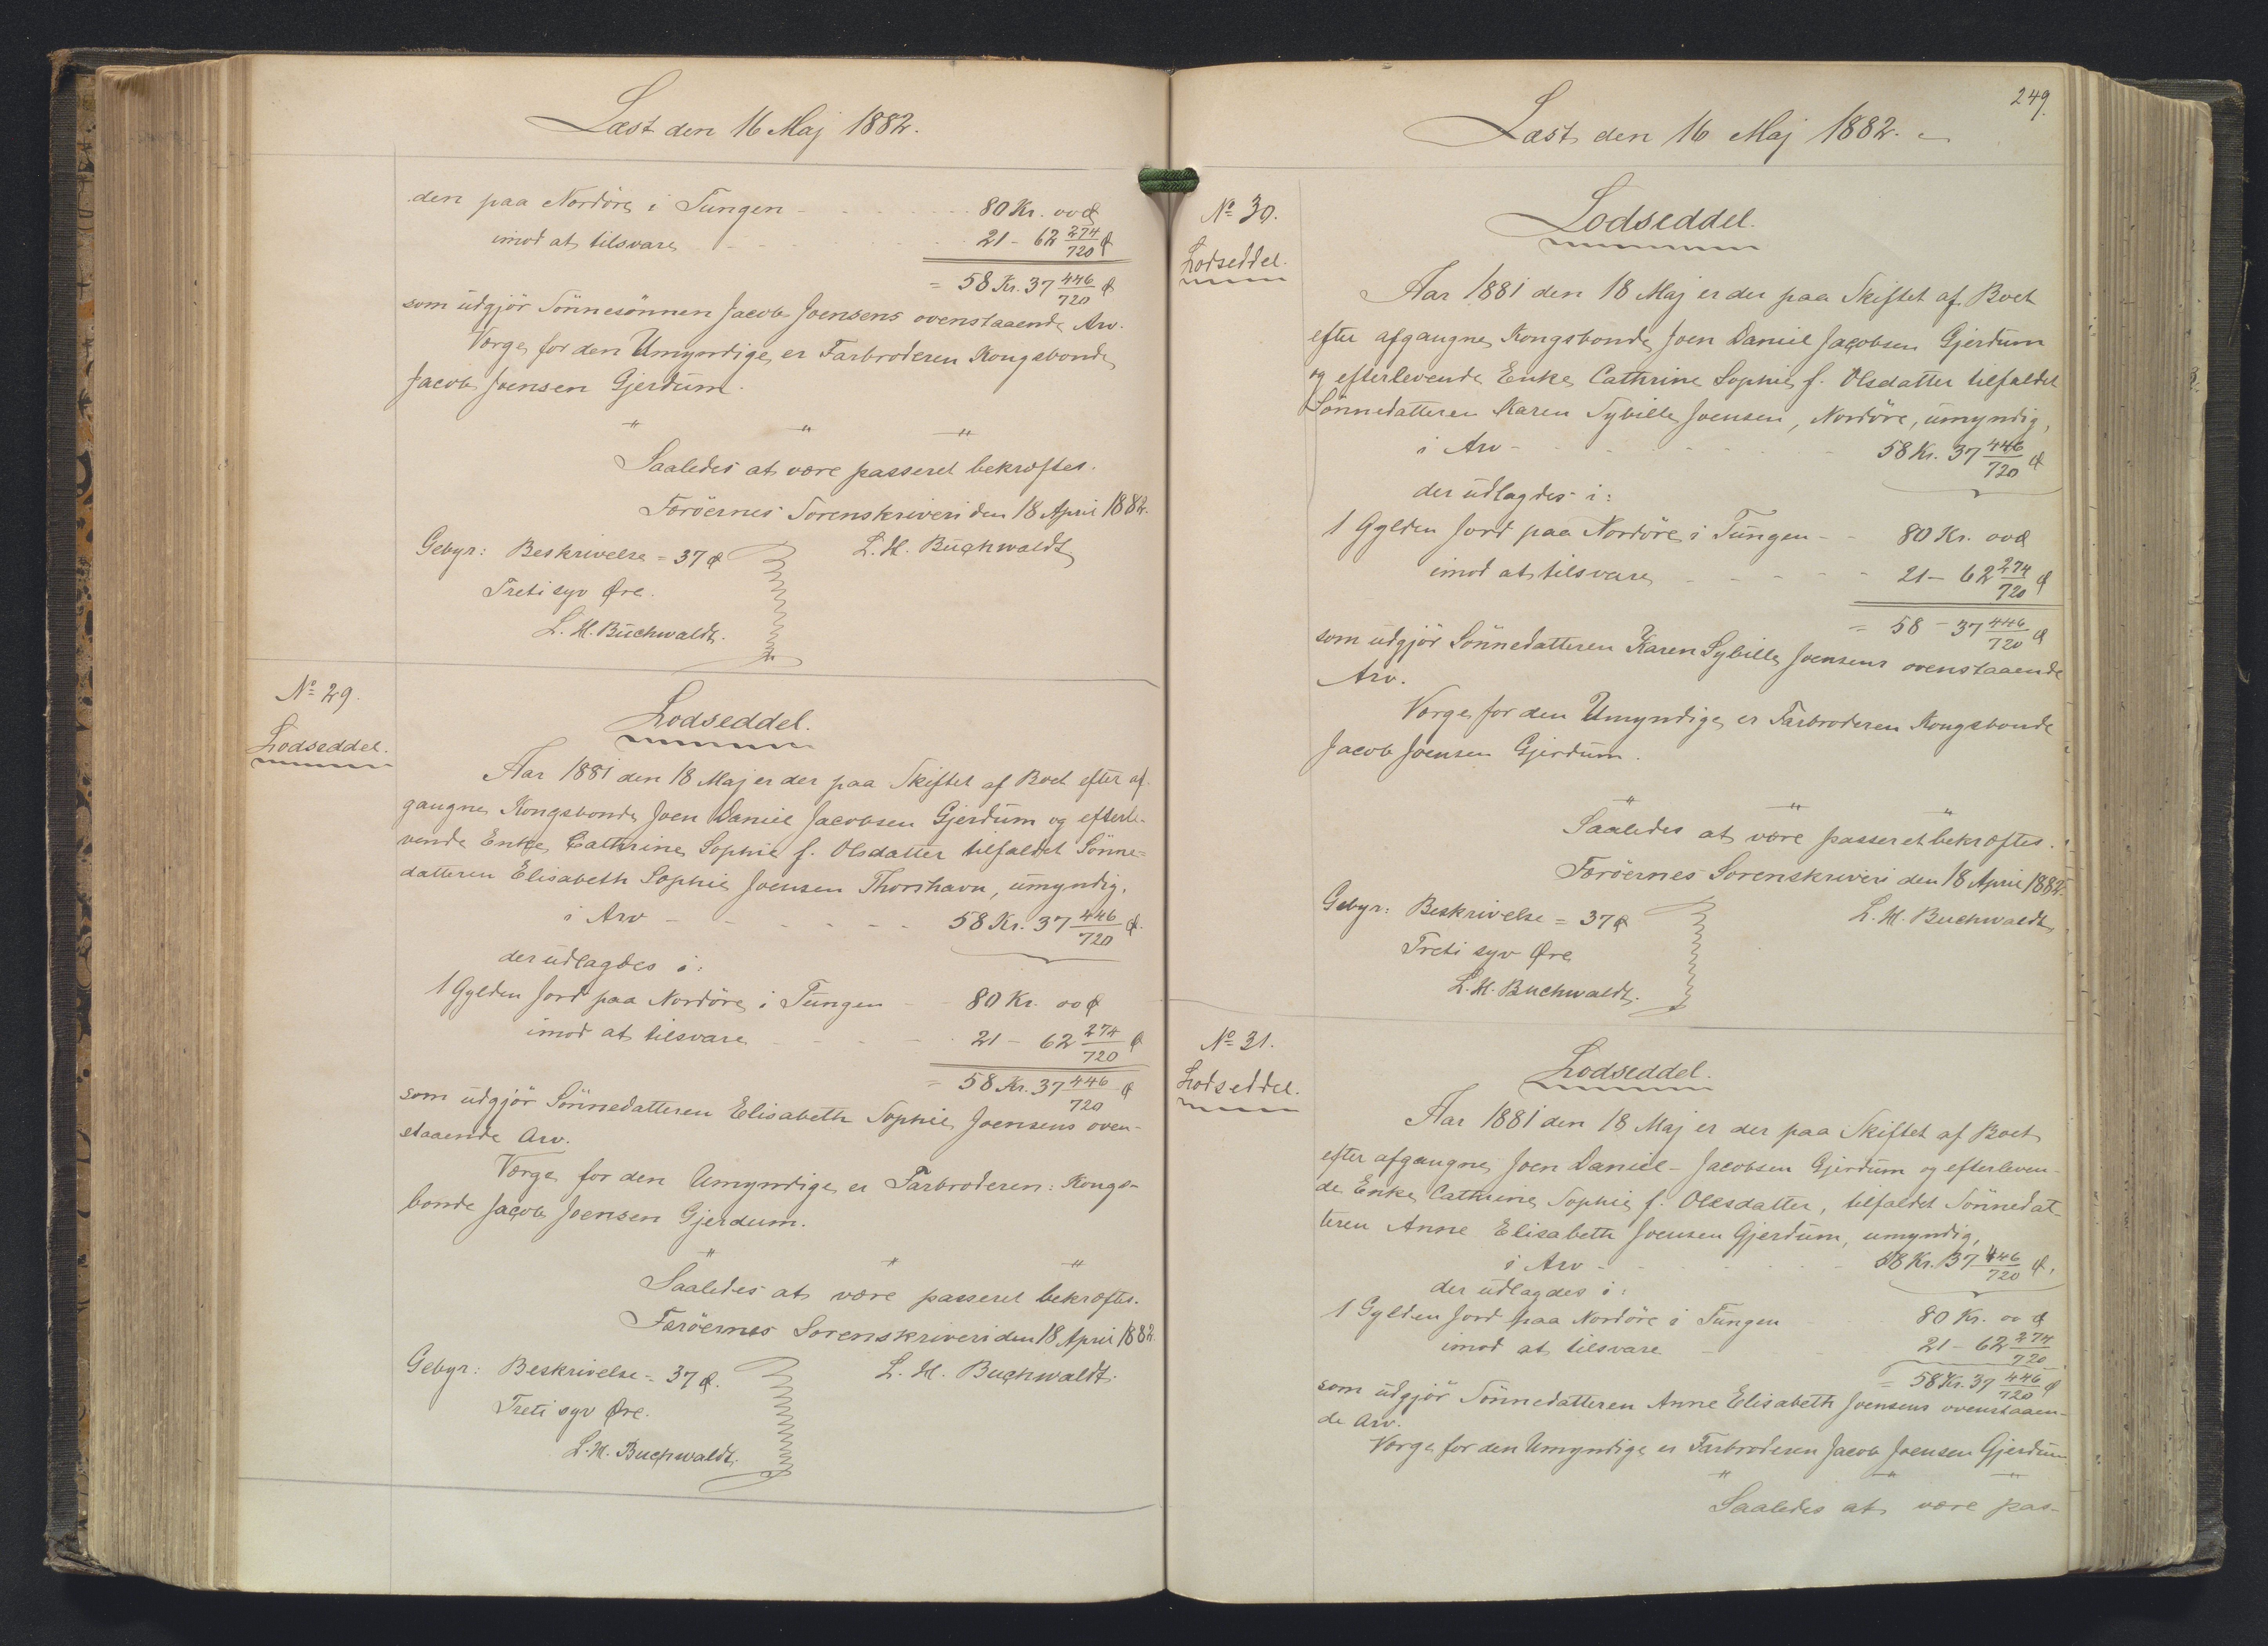 Læst den 16 Maj 1882.
den paa Nordöre i Tungen - 80 Kr. 00 Ø
imod at tilsvare - 21 - 62 274/720 Ø
= 58 Kr. 37 446/720 Ø
som udgjör Sönnesönnen Jacob Joensens ovenstaaende Arv.
Værge for den Umyndige er Farbroderen Kongsbonde
Jacob Joensen Gjerdum.
" " "
Saaledes at være passeret bekræftes.
Færöernes Sorenskriveri den 18 April 1882.
Gebyr: Beskrivelse = 37 Ø L. H. Buchwaldt
Treti syv Øre.
L. H. Buchwaldt.
No 29.
Lodseddel.
Lodseddel.
Aar 1881 den 18 Maj er der paa Skiftet af Boet efter af-
gangne Kongsbonde Joen Daniel Jacobsen Gjerdum og efterle-
vende Enke Cathrine Sophie f. Olsdatter tilfaldet Sönne=
datteren Elisabeth Sophie Joensen Thorshavn, umyndig,
i Arv - 58 Kr. 37 446/720 Ø.
der udlagdes i:
1 Gylden Jord paa Nordöre i Tungen - 80 Kr. 00 Ø
imod at tilsvare - 21 - 62 274/720 Ø
= 58 Kr. 37 446/720 Ø
som udgjör Sönnedatteren Elisabeth Sophie Joensens oven-
staaende Arv.
Værge for den Umyndige er Farbroderen: Kongs-
bonde Jacob Joensen Gjerdum.
" " "
Saaledes at være passeret bekræftes.
Færöernes Sorenskriveri den 18 April 1882.
Gebyr: Beskrivelse = 37 Ø. L. H. Buchwaldt.
Treti syv Øre.
L. H. Buchwaldt.
249.
Læst den 16 Maj 1882.
No 30.
Lodseddel.
Lodseddel.
Aar 1881 den 18 Maj er der paa Skiftet af Boet
efter afgangne Kongsbonde Joen Daniel Jacobsen Gjerdum
og efterlevende Enke Cathrine Sophie f. Olsdatter tilfaldet
Sönnedatteren Karen Sybille Joensen, Nordöre, umyndig,
i Arv - 58 Kr. 37 446/720 Ø
der udlagdes i:
1 Gylden Jord paa Nordöre i Tungen - 80 Kr. 00 Ø
imod at tilsvare - 21 - 62 274/720 Ø
= 58 - 37 446/720 Ø
som udgjör Sönnedatteren Karen Sybille Joensens ovenstaaende
Arv.
Værge for den Umyndige er Farbroderen Kongsbonde
Jacob Joensen Gjerdum.
" " "
Saaledes at være passeret bekræftes.
Færöernes Sorenskriveri den 18 April 1882.
Gebyr: Beskrivelse = 37 Ø L. H. Buchwaldt
Treti syv Øre
L. H. Buchwaldt.
No 31.
Lodseddel.
Lodseddel.
Aar 1881 den 18 Maj er der paa Skiftet af Boet
efter afgangne Joen Daniel - Jacobsen Gjerdum og efterleven-
de Enke Cathrine Sophie f. Olesdatter, tilfaldet Sönnedat-
teren Anne Elisabeth Joensen Gjerdum, umyndig,
i Arv - 58 Kr. 37 446/720 Ø.
der udlagdes i:
1 Gylden Jord paa Nordöre i Tungen 80 Kr. 00 Ø
imod at tilsvare - 21 - 62 274/720.
= 58 Kr. 37 446/720 Ø
som udgjör Sönnedatteren Anne Elisabeth Joensens ovenstaaen-
de Arv.
Værge for den Umyndige er Farbroderen Jacob Joensen Gjerdum
" " "
Saaledes at være pas-